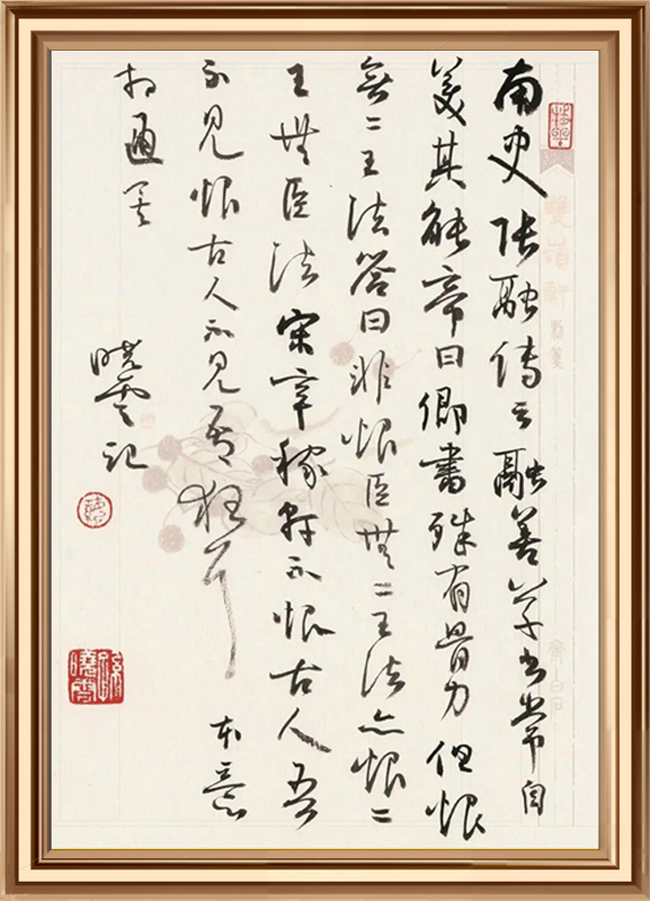 南史張融傳云融善草书常自
美其能帝曰卿書殊有骨力但恨
無二王法答曰非恨臣無二王法亦恨二
王無臣法宋辛稼軒不恨古人吾
不見恨古人不見吾狂耳本意
相通矣
曉雲記
孫曉雲